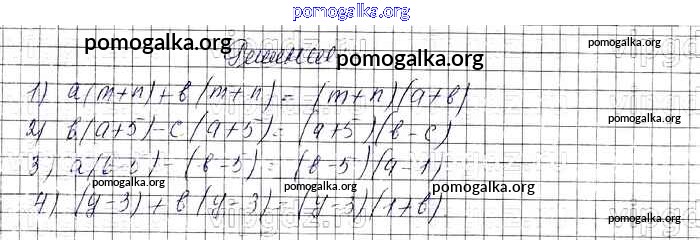 pomogalka.org
pomogalka.org Решение pomogalka.org pomogalka.org
1) a(m+n)+b(m+n)=(m+n)(a+b)
2) b(a+5)-c(a+5)=(a+5)(b-c) pomogalka.org
3) a(b-5)-(b-5)=(b-5)(a-1)
pomogalka.org pomogalka.org pomogalka.org
4) (y-3)+b(y-3)=(y-3)(1+b)
vipgdz.ru pomogalka.org